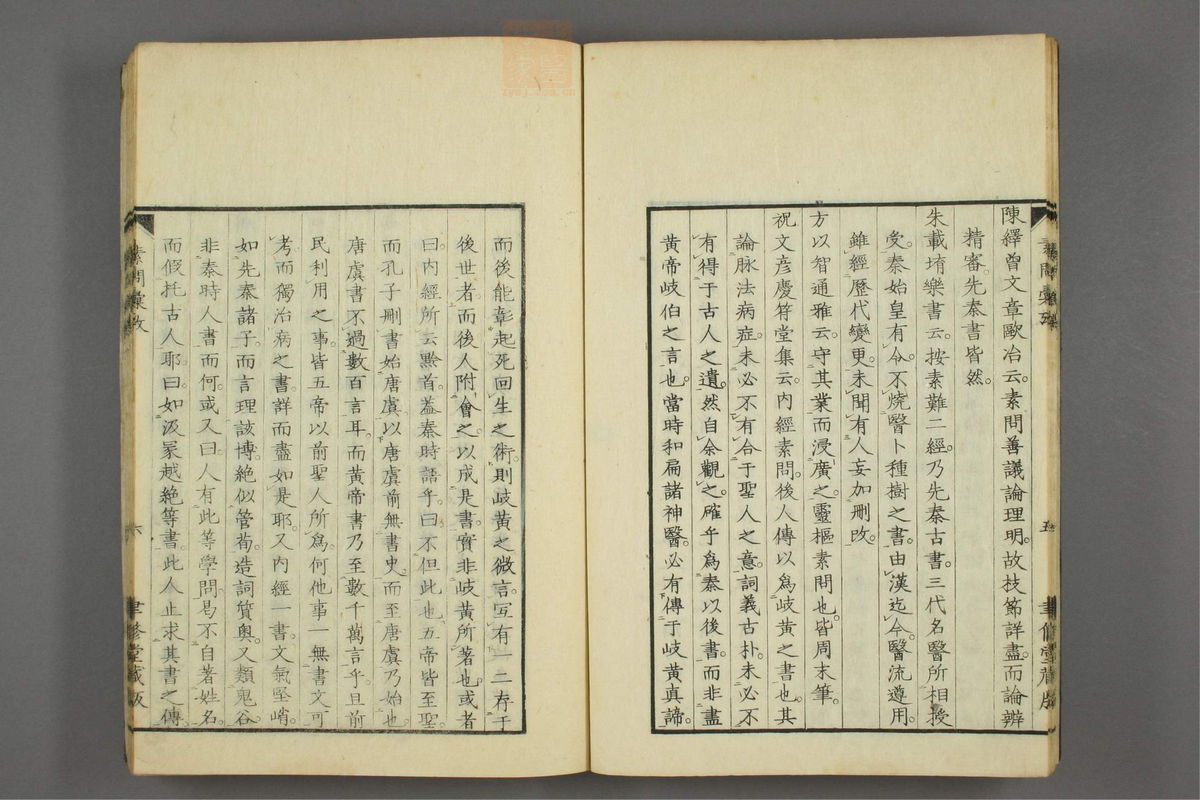 陳繹曾文章歐冶云。素問善議論理明。故枝節詳盡。而論辨
精審。先秦書皆然。
朱載堉樂書云。按素難二經。乃先秦古書。三代名醫所相授
受。秦始皇有令。不燒醫卜種樹之書。由漢迄今。醫流遵用。
雖經歷代變更。未聞有人妄加刪改。
方以智通雅云。守其業而浸廣之。靈樞素問也。皆周末筆。
祝文彥慶符堂集云。內經素問。後人傳以爲岐黃之書也。其
論脉法病症。未必不有合于聖人之意。詞義古朴。未必不
有得于古人之遺。然自余觀之。確乎爲秦以後書。而非盡
黃帝岐伯之言也。當時和扁諸神醫。必有傳于岐黃眞諦。
素問彙攷
五
聿修堂藏版
而後能彰起死回生之術。則岐黃之微言。宐有一二存于
後世者。而後人附會之。以成是書。實非岐黃所著也。或者
曰。內經所云黔首。葢秦時語乎。曰不但此也。五帝皆至聖。
而孔子刪書始唐虞。以唐虞前無書史。而至唐虞乃始也。
唐虞書不過數百言耳。而黃帝書乃至數千萬言乎。且前
民利用之事。皆五帝以前聖人所爲。何他事一無書文可
考。而獨治病之書。詳而盡如是耶。又內經一書。文氣堅峭。
如先秦諸子。而言理該博。絶似管荀。造詞質奧。又類鬼谷。
非秦時人書而何。或又曰。人有此等學問。曷不自著姓名。
而假托古人耶。曰。如汲冢越絶等書。此人止求其書之傳。
素問彙攷
六
聿修堂藏版